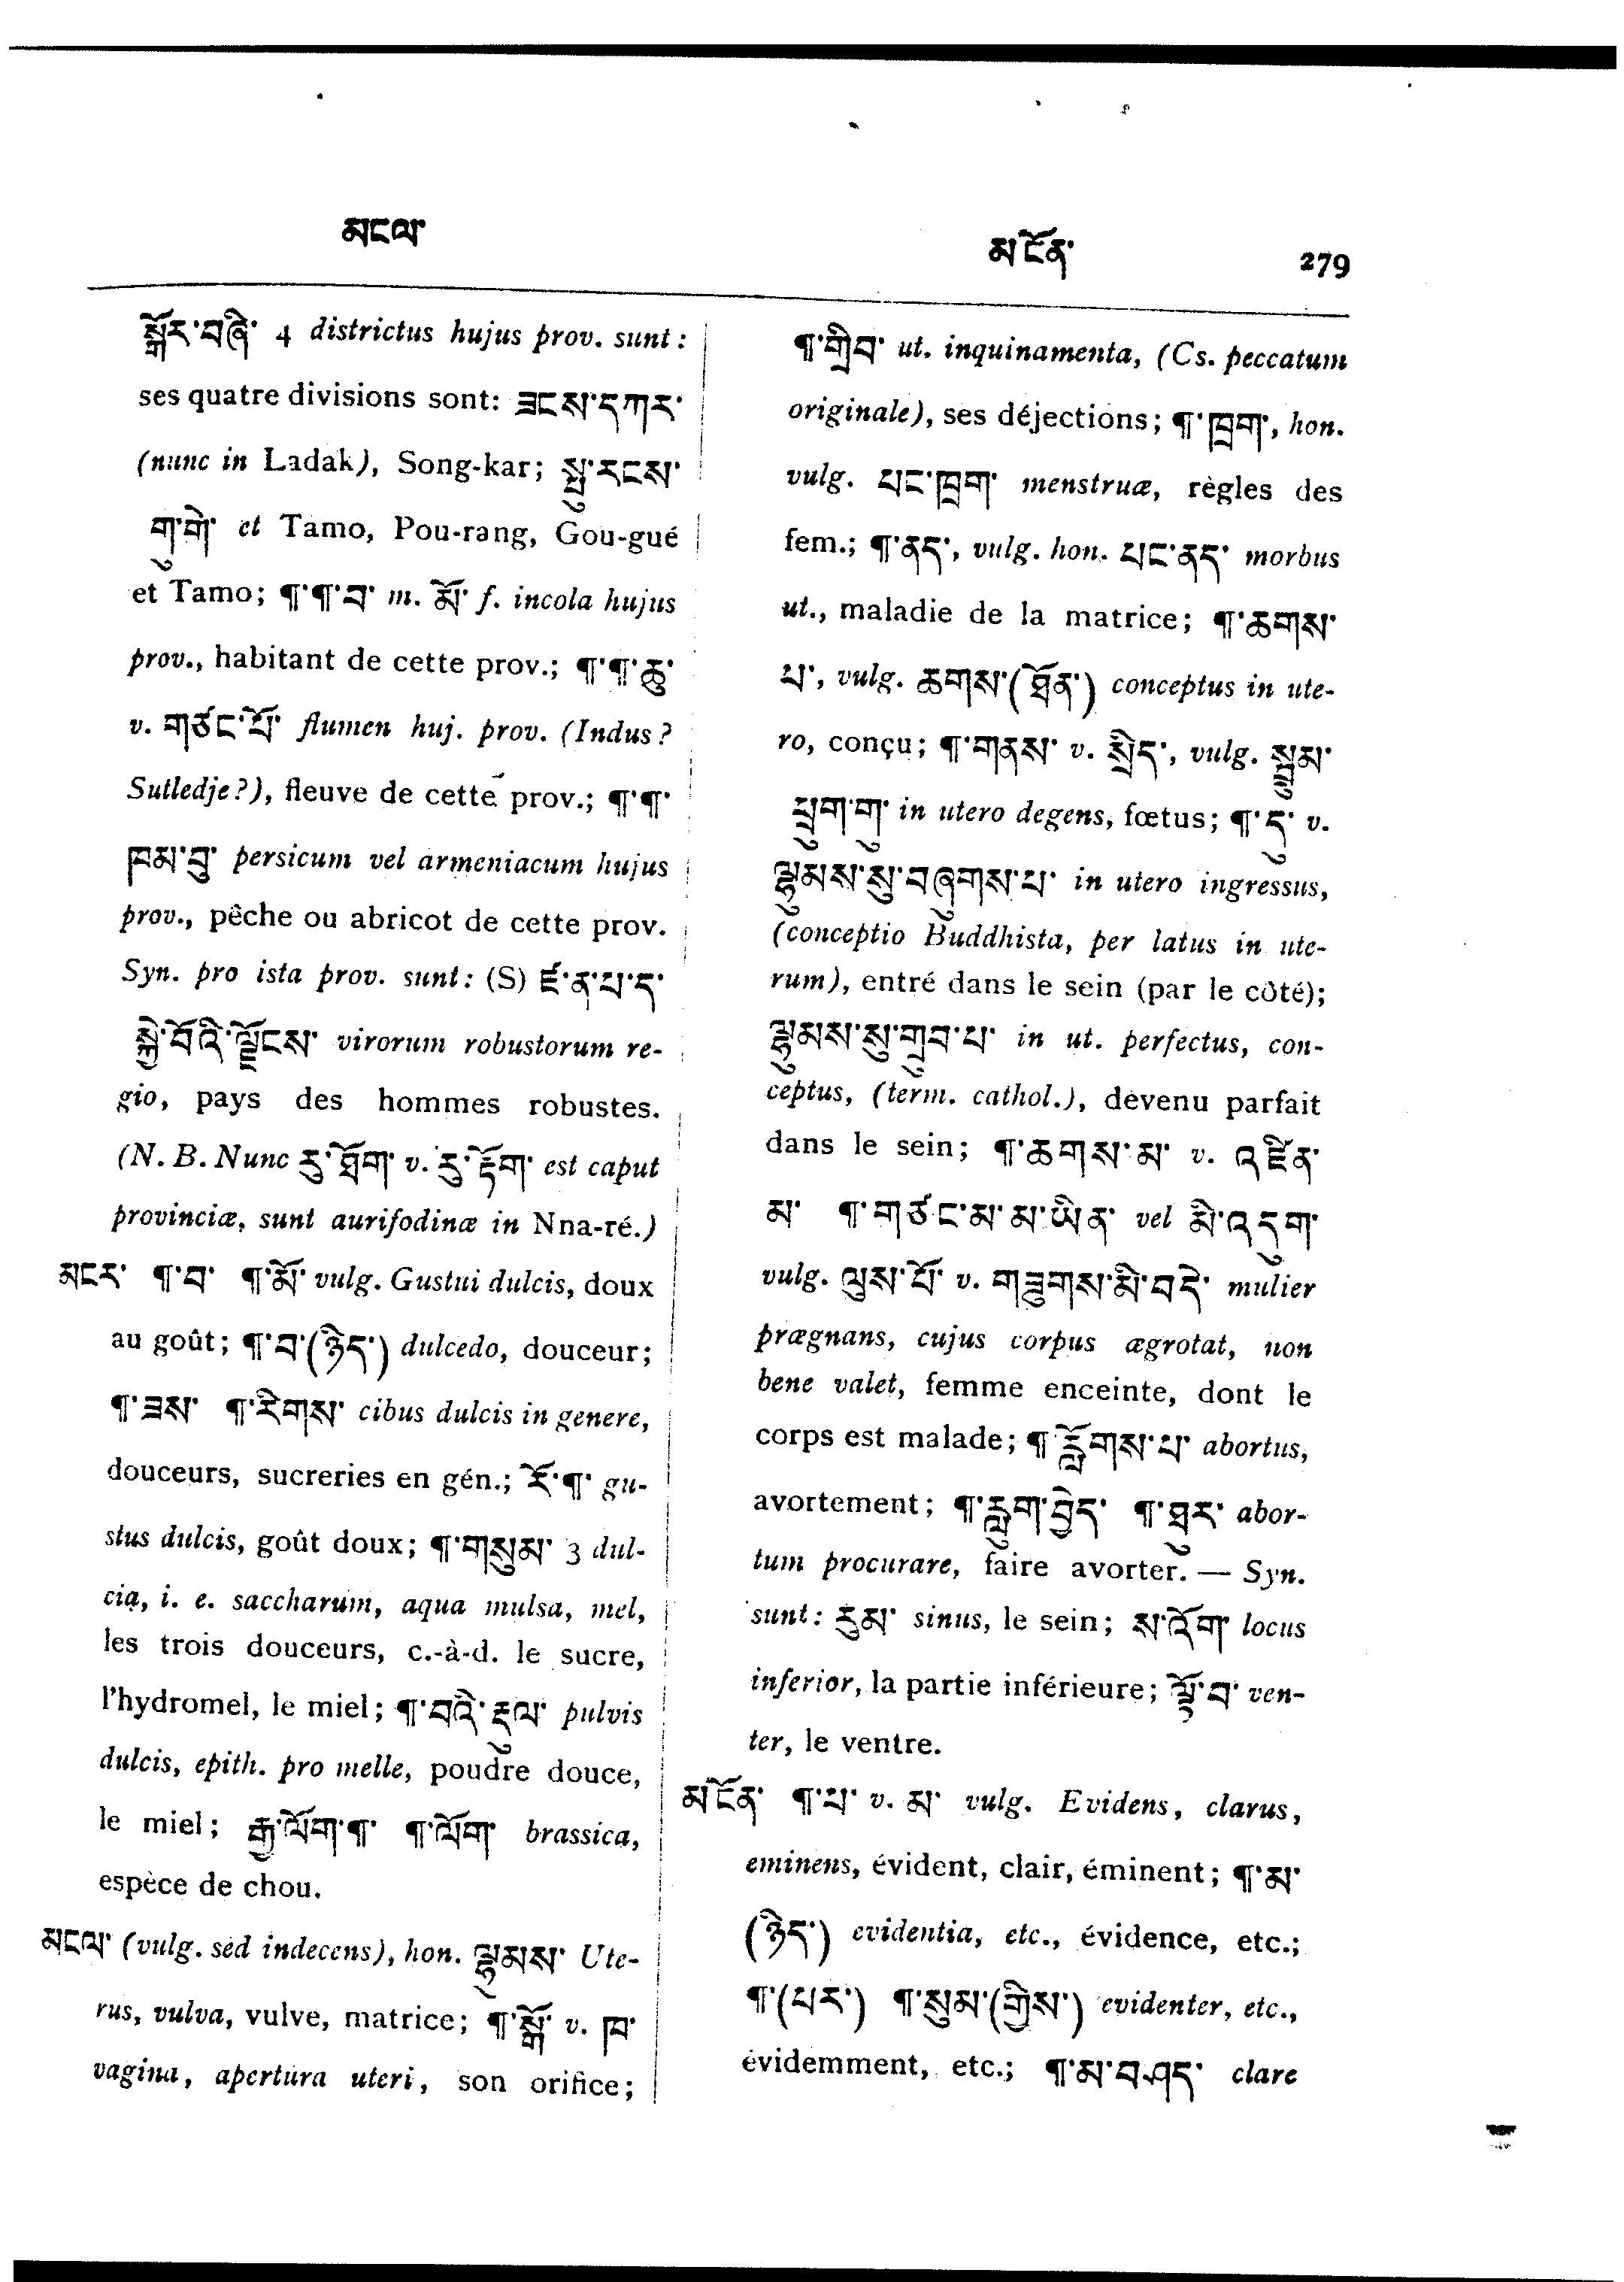 མངལ་
མངོན་ 279
སྒོར་བཞི་ 4 districtus hujus prov. sunt :
ses quatre divisions sont: ཟངས་དཀར་
(nunc in Ladak), Song-kar; སྤུ་རངས་
གུ་གེ་ et Tamo, Pou-rang, Gou-gué
et Tamo; ¶་¶་བ་ m. མོ་ f. incola hujus
prov., habitant de cette prov.; ¶་¶་ཆུ་
v. གཙང་པོ་ flumen huj. prov. (Indus ?
Sutledje?), fleuve de cette prov.; ¶་¶་
ཁམ་བུ་ persicum vel armeniacum hujus
prov., pêche ou abricot de cette prov.
Syn. pro ista prov. sunt: (S) ཛ་ན་པ་ད་
སྐྱེ་བོའི་ལྗོངས་ virorum robustorum re-
gio, pays des hommes robustes.
(N. B. Nunc རུ་ཐོག་ v. རུ་རྡོག་ est caput
provinciæ, sunt aurifodinæ in Nna-ré.)
མངར་ ¶་བ་ ¶་མོ་ vulg. Gustui dulcis, doux
au goût; ¶་བ་(ཉིད་) dulcedo, douceur;
¶་ཟས་ ¶་རིགས་ cibus dulcis in genere,
douceurs, sucreries en gén.; རོ་¶་ gu-
stus dulcis, goût doux; ¶་གསུམ་ 3 dul-
cia, i. e. saccharum, aqua mulsa, mel,
les trois douceurs, c.-à-d. le sucre,
l'hydromel, le miel; ¶་བའི་རྡུལ་ pulvis
dulcis, epith. pro melle, poudre douce,
le miel; རྒྱ་ལོག་¶་ ¶་ལོག་ brassica,
espèce de chou.
མངལ་ (vulg. sed indecens), hon. ལྷུམས་ Ute-
rus, vulva, vulve, matrice; ¶་སྒོ་ v. ཁ་
vagina, apertura uteri, son orifice;
¶་གྲིབ་ ut. inquinamenta, (Cs. peccatum
originale), ses déjections; ¶་ཁྲག་, hon.
vulg. པང་ཁྲག་ menstruæ, règles des
fem.; ¶་ནད་, vulg. hon. པང་ནད་ morbus
ut., maladie de la matrice; ¶་ཆགས་
པ་, vulg. ཆགས་(ཐོན་) conceptus in ute-
ro, conçu; ¶་གནས་ v. སྲིད་, vulg. སྦྲུམ་
ཕྲུག་གུ་ in utero degens, fœtus; ¶་དུ་ v.
ལྷུམས་སུ་བཞུགས་པ་ in utero ingressus,
(conceptio Buddhista, per latus in ute-
rum), entré dans le sein (par le côté);
ལྷུམས་སུ་གྲུབ་པ་ in ut. perfectus, con-
ceptus, (term. cathol.), devenu parfait
dans le sein; ¶་ཆགས་མ་ v. འཛིན་
མ་ ¶་གཙང་མ་མ་ཡིན་ vel མི་འདུག་
vulg. ལུས་པོ་ v. གཟུགས་མི་བདེ་ mulier
prægnans, cujus corpus ægrotat, non
bene valet, femme enceinte, dont le
corps est malade; ¶་རློགས་པ་ abortus,
avortement; ¶་རླུག་བྱེད་ ¶་ཐུར་ abor-
tum procurare, faire avorter. — Syn.
sunt: རུམ་ sinus, le sein; ས་འོག་ locus
inferior, la partie inférieure; ལྟོ་བ་ ven-
ter, le ventre.
མངོན་ ¶་པ་ v. མ་ vulg. Evidens, clarus,
eminens, évident, clair, éminent; ¶་མ་
(ཉིད་) evidentia, etc., évidence, etc.;
¶་(པར་) ¶་སུམ་(གྱིས་) evidenter, etc.,
évidemment, etc.; ¶་མ་བཤད་ clare